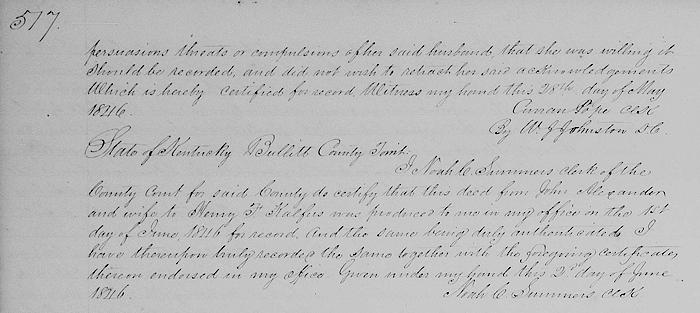 517.
persuasions threats or compulsions of her said husband, that she was willing it
should be recorded, and did not wish to retract her said acknowledgements
Which is hereby certified for record. Witness my hand this 28th day of May
1846.
Curran Pope Clk
By W. J. Johnston D.C.
State of Kentucky Bullitt County Sct.
I Noah C. Summers clerk of the
County Court for said County do certify that this deed from John Alexander
and wife to Henry F. Kalfus was produced to me in my office on the 1st
day of June 1846 for record. And the same being duly authenticated I
have thereupon truly recorded the same together with the foregoing certificates
thereon endorsed in my office Given under my hand this 2d day of June
1846.
Noah C. Summers, Clk